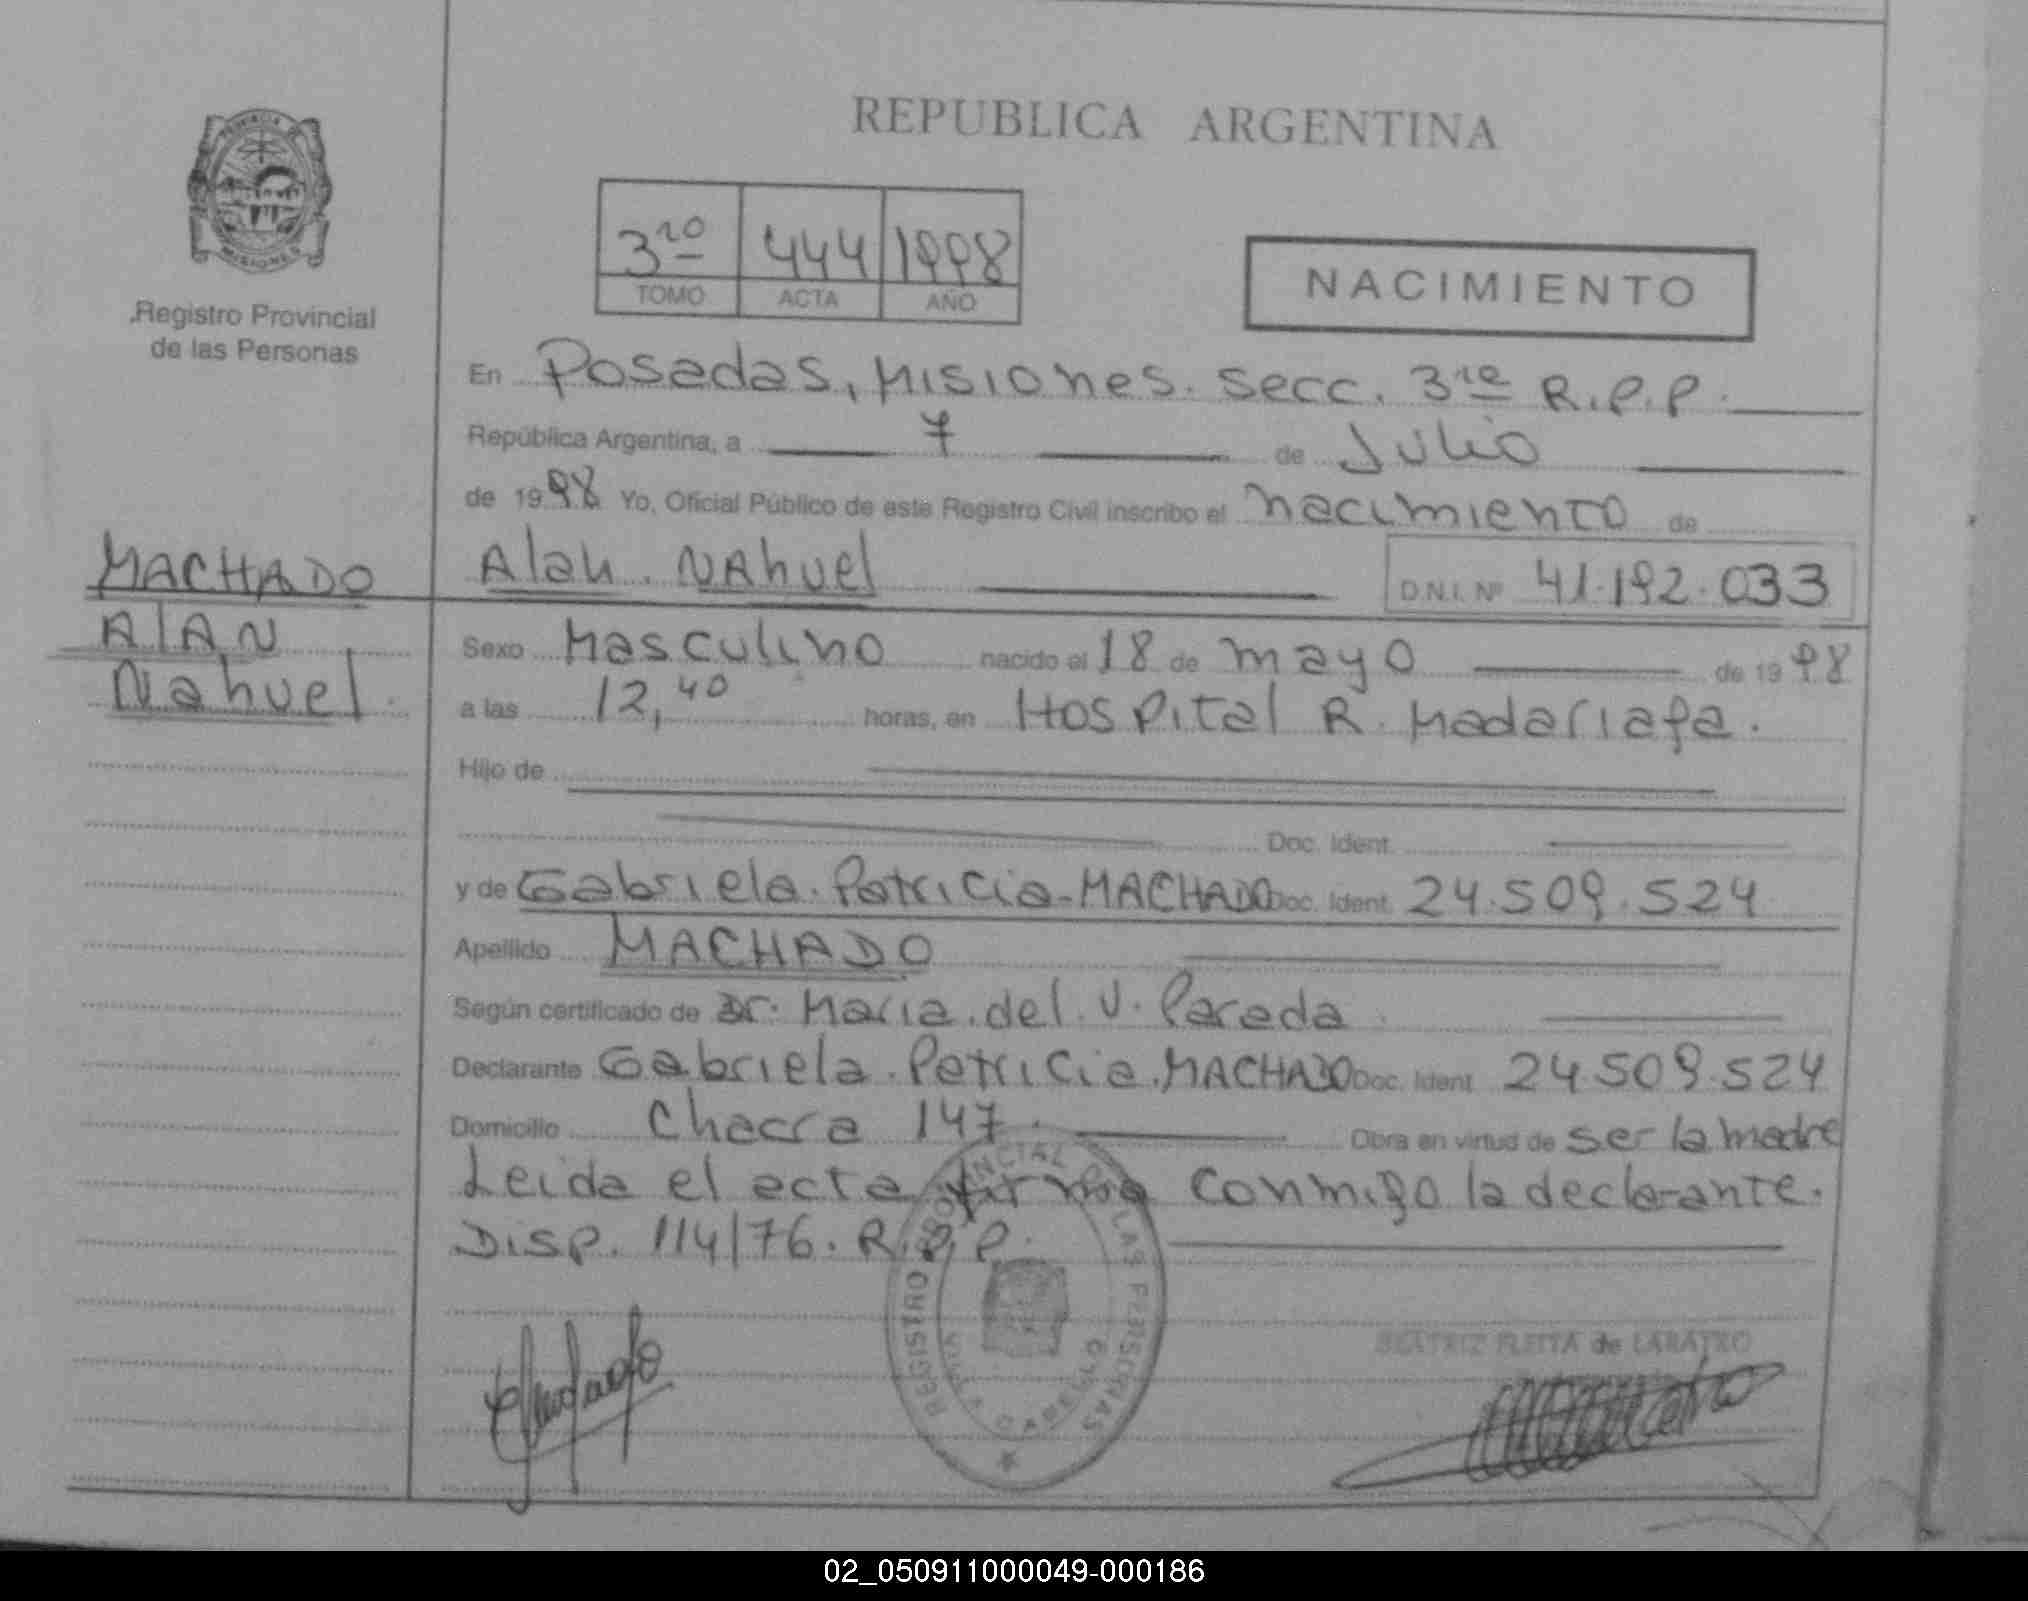 REPUBLICA ARGENTINA
PROVINCIA DE
MISIONES
Registro Provincial
de las Personas
3ro 444 1998
TOMO ACTA AÑO
NACIMIENTO
En Posadas, Misiones. Secc. 3ra R.P.P.
República Argentina, a 7 de Julio
de 1998 Yo, Oficial Público de este Registro Civil inscribo el nacimiento de
MACHADO
Alan
Nahuel
Alan. Nahuel D.N.I. Nº 41.192.033
Sexo Masculino nacido el 18 de mayo de 1998
a las 12,40 horas, en Hospital R. Madariaga.
Hijo de
Doc. Ident.
y de Gabriela. Patricia-MACHADO Doc. Ident. 24.509.524
Apellido MACHADO
Según certificado de Dr. Maria. del. V. Pareda
Declarante Gabriela. Patricia. MACHADO Doc. Ident 24.509.524
Domicilio Chacra 147. Obra en virtud de ser la madre
Leida el acta firma conmigo la declarante.
Disp. 114/76. R.P.P.
REGISTRO PROVINCIAL DE LAS PERSONAS
VILLA CABELLO
BEATRIZ FLEITA de LABATRO
02_050911000049-000186